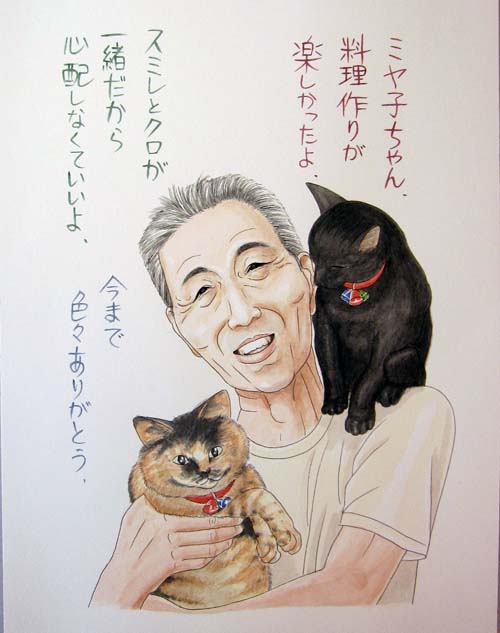 ミヤ子ちゃん、
料理作りが
楽しかったよ、
スミレとクロが
一緒だから
心配しなくていいよ、
今まで
色々ありがとう、